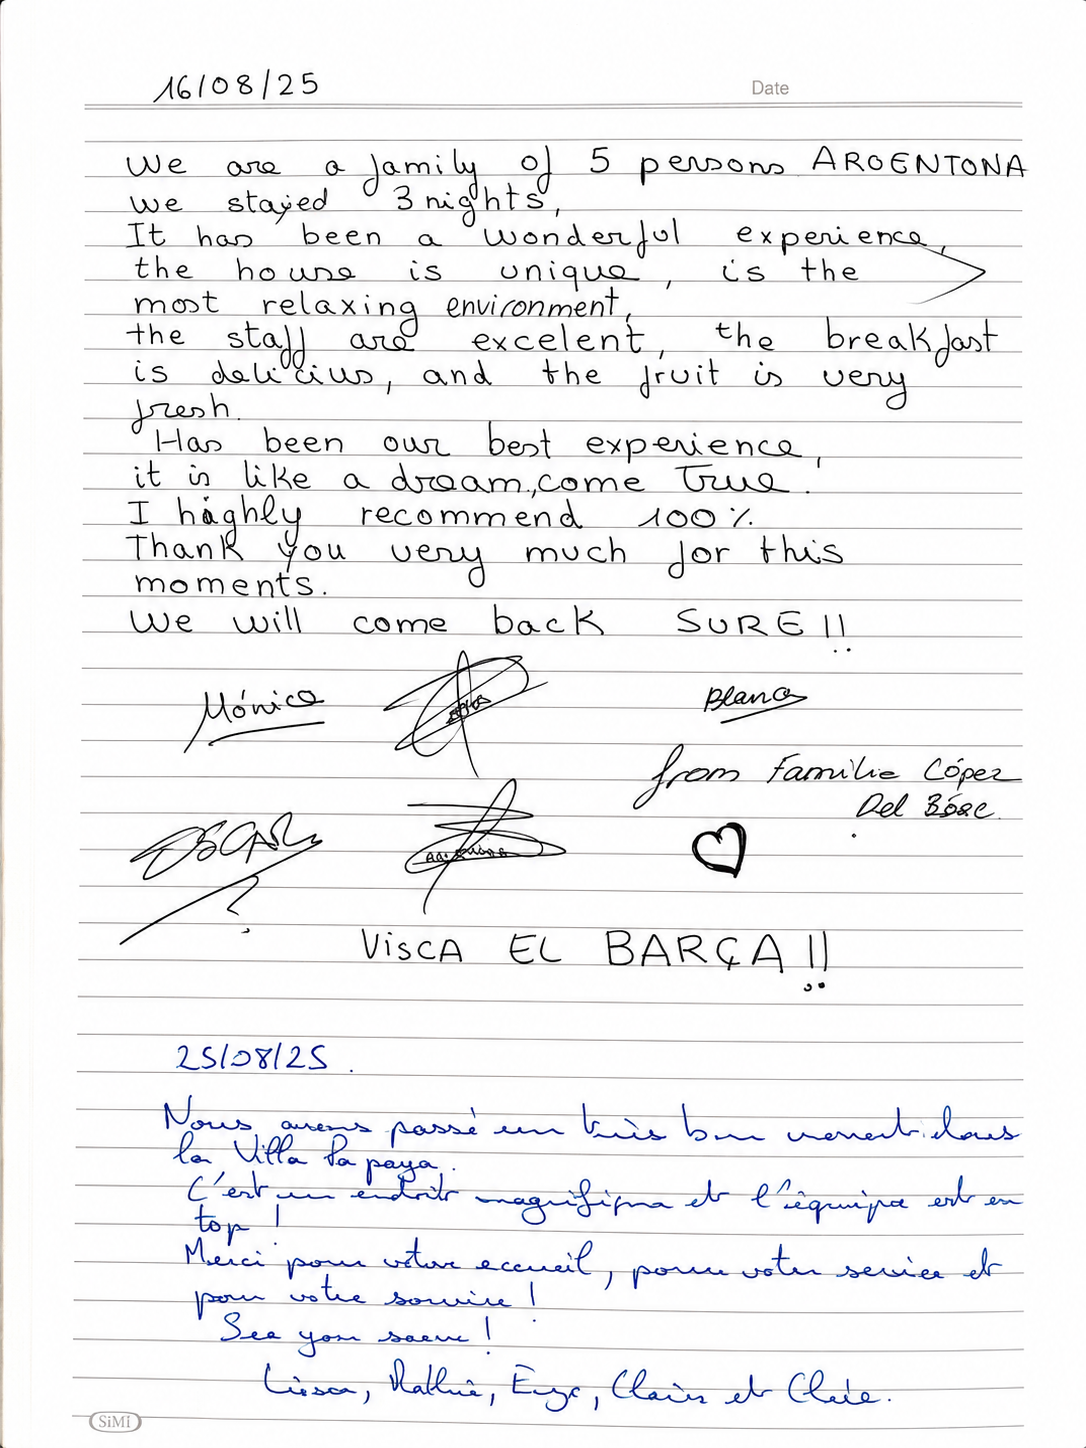 16/08/25
Date
We are a family of 5 persons ARGENTONA
we stayed 3 nights,
It has been a wonderful experience,
the house is unique, is the
most relaxing environment,
the staff are excelent, the breakfast
is delicius, and the fruit is very
fresh.
Has been our best experience,
it is like a dream, come True.
I highly recommend 100%
Thank you very much for this
moments.
We will come back SURE!!
Mónica
Blanca
from Familie López
Del
OSCAR
VISCA EL BARÇA!!
25/08/25.
Nous avons passé un très bon moment dans
la Villa Papaya.
C'est un endroit magnifique et l'équipe est au
top !
Merci pour votre accueil, pour votre service et
pour votre sourire !
See you soon !
Enzo, et Chloé.
SiMI